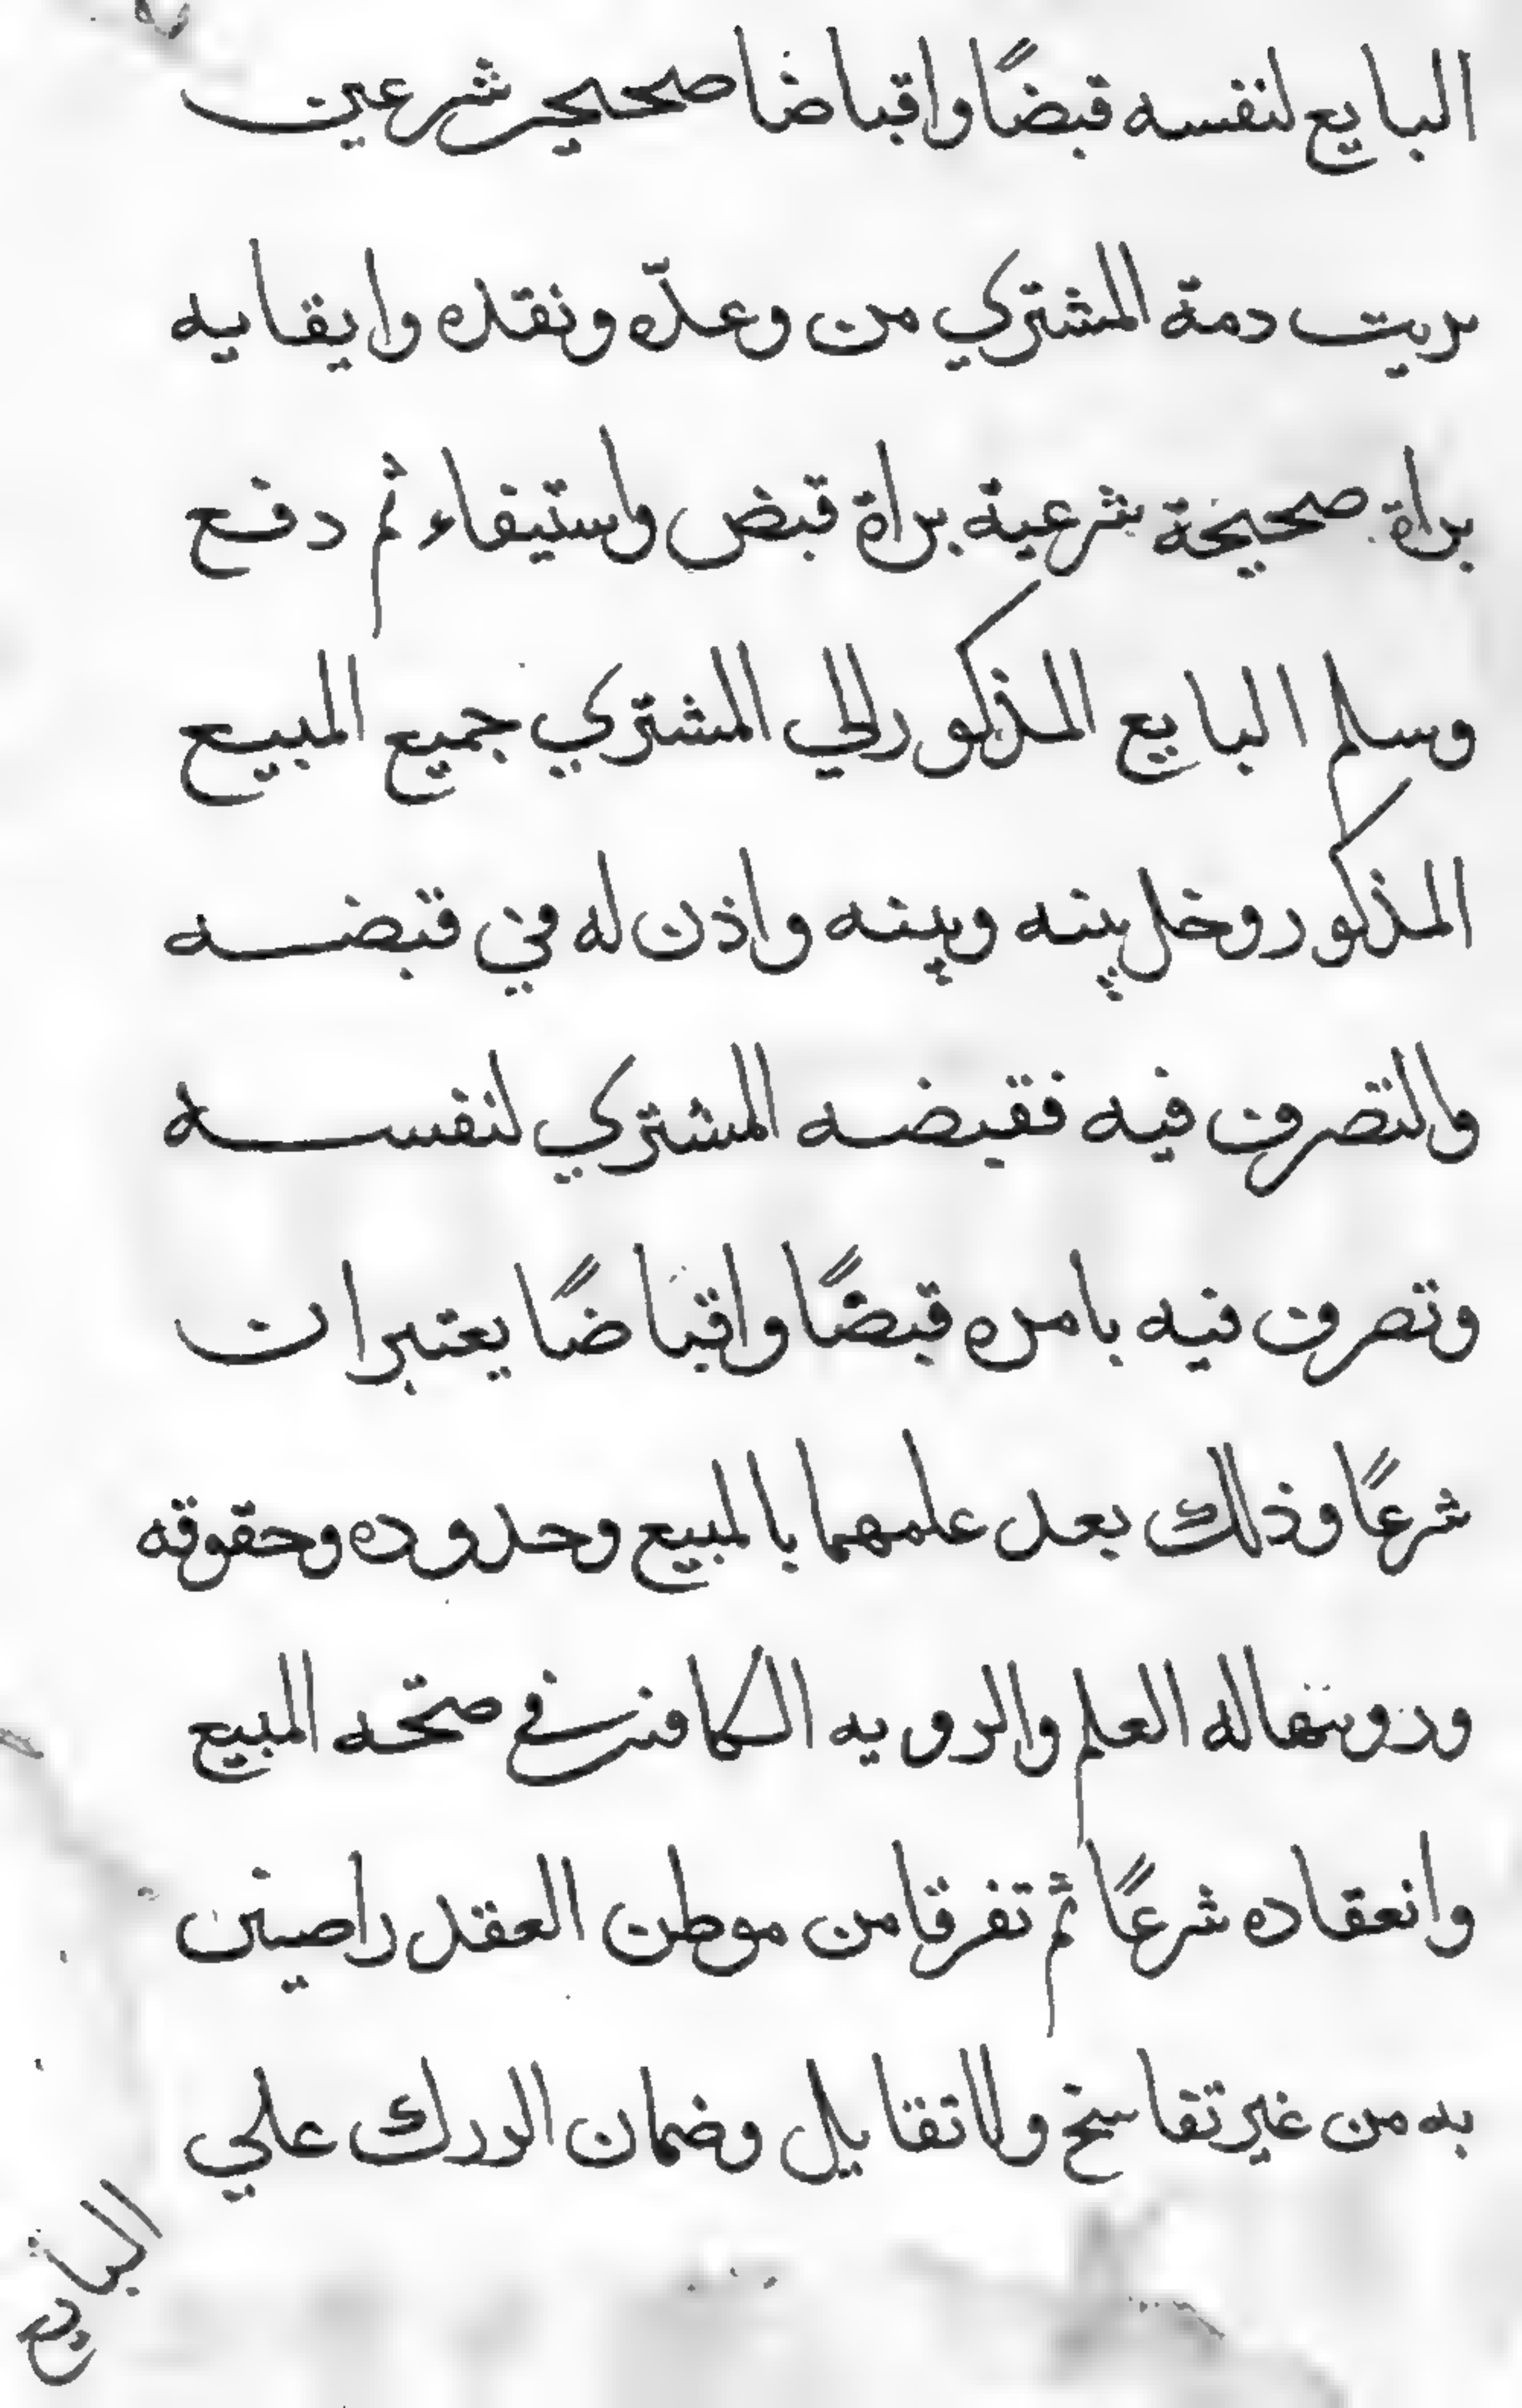 البايع لنفسه قبضًا واقباضا صحيحين شرعين
بريت دمة المشتري من وعدّه ونقده وايقايه
براة صحيحة شرعية براة قبض واستيفاء ثم دفع
وسلم البايع المذكور الي المشتري جميع المبيع
المذكور وخلي بينه وبينه واذن له في قبضه
والتصرف فيه فقبضه المشتري لنفسه
وتصرف فيه بامره قبضًا واقباضًا يعتبران
شرعًا وذلك بعد علمهما بالمبيع وحدوده وحقوقه
ورويتهما له العلم والرويه الكافين في صحه المبيع
وانعقاده شرعًا ثم تفرقا من موطن العقد راضين
به من غير تفاسخ ولا تقايل وضمان الدرك علي
البايع